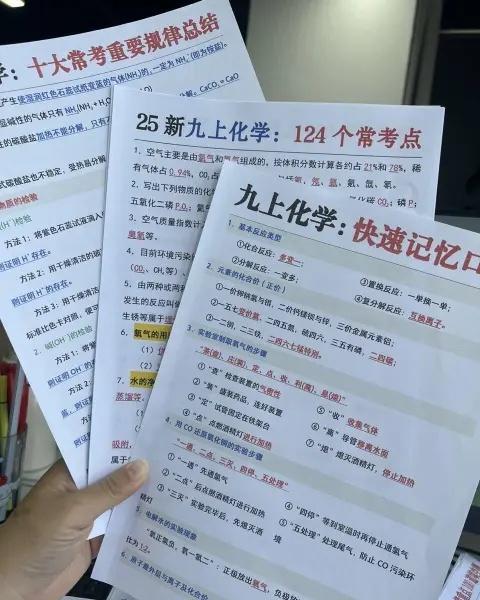 十大常考重要规律总结
产生使湿润红色石蕊试纸变蓝的气体(NH₃)的,一定为NH₄⁺(即为铵盐)。
的碳酸盐加热不能分解,只有
式碳酸盐也不稳定,受热易分解
物质的检验
(H⁺)检验
方法1:将紫色石蕊试液滴入
则证明H⁺存在。
方法2:用干燥清洁的
则证明H⁺存在。
方法3:用干燥清洁
标准比色卡对照,便
2. 碱(OH⁻)的检验
方法1:将紫
则证明OH⁻
方法2:
25新九上化学:124个常考点
1、空气主要是由氮气和氧气组成的,按体积分数计算各约占21%和78%,稀
有气体占0.94%,CO₂占
2、写出下列物质的化
五氧化二磷P₂O₅;氯
3、空气质量指数计
臭氧等。
4、目前环境污染
(CO₂、CH₄等)、
5、由两种或两种
发生的反应叫做
生锈等属于缓
6、氧气的用
7、水的净
蒸馏等,
吸附,
属于
九上化学:快速记忆口
1、基本反应类型
①化合反应:多变一;
②分解反应:一变多;
③置换反应:一单换一单;
④复分解反应:互换离子。
2、元素的化合价(正价)
①一价钾钠氯与银,二价钙镁钡与锌,三价金属元素铝;
②一五七变价氯,二四五氮,硫四六,三五有磷,二四碳;
③一二铜,二三铁,二四六七锰特别。
3、实验室制取氧气的步骤
“茶(查)、庄(装)、定、点、收、利(离)、息(熄)”
①“查”检查装置的气密性
②“装”盛装药品,连好装置
③“定”试管固定在铁架台
④“点”点燃酒精灯进行加热
⑤“收”收集气体
⑥“离”导管移离水面
⑦“熄”熄灭酒精灯,停止加热
4、用CO还原氧化铜的实验步骤
“一通、二点、三灭、四停、五处理”
①“一通”先通氢气
②“二点”后点燃酒精灯进行加热
③“三灭”实验完毕后,先熄灭酒
精灯
④“四停”等到室温时再停止通氢气
⑤“五处理”处理尾气,防止CO污染环
境
5、电解水的实验现象
“氧正氢负,氧一氢二”:正极放出氧气,负极放
比为1:2。
6、原子最外层与离子及化合价